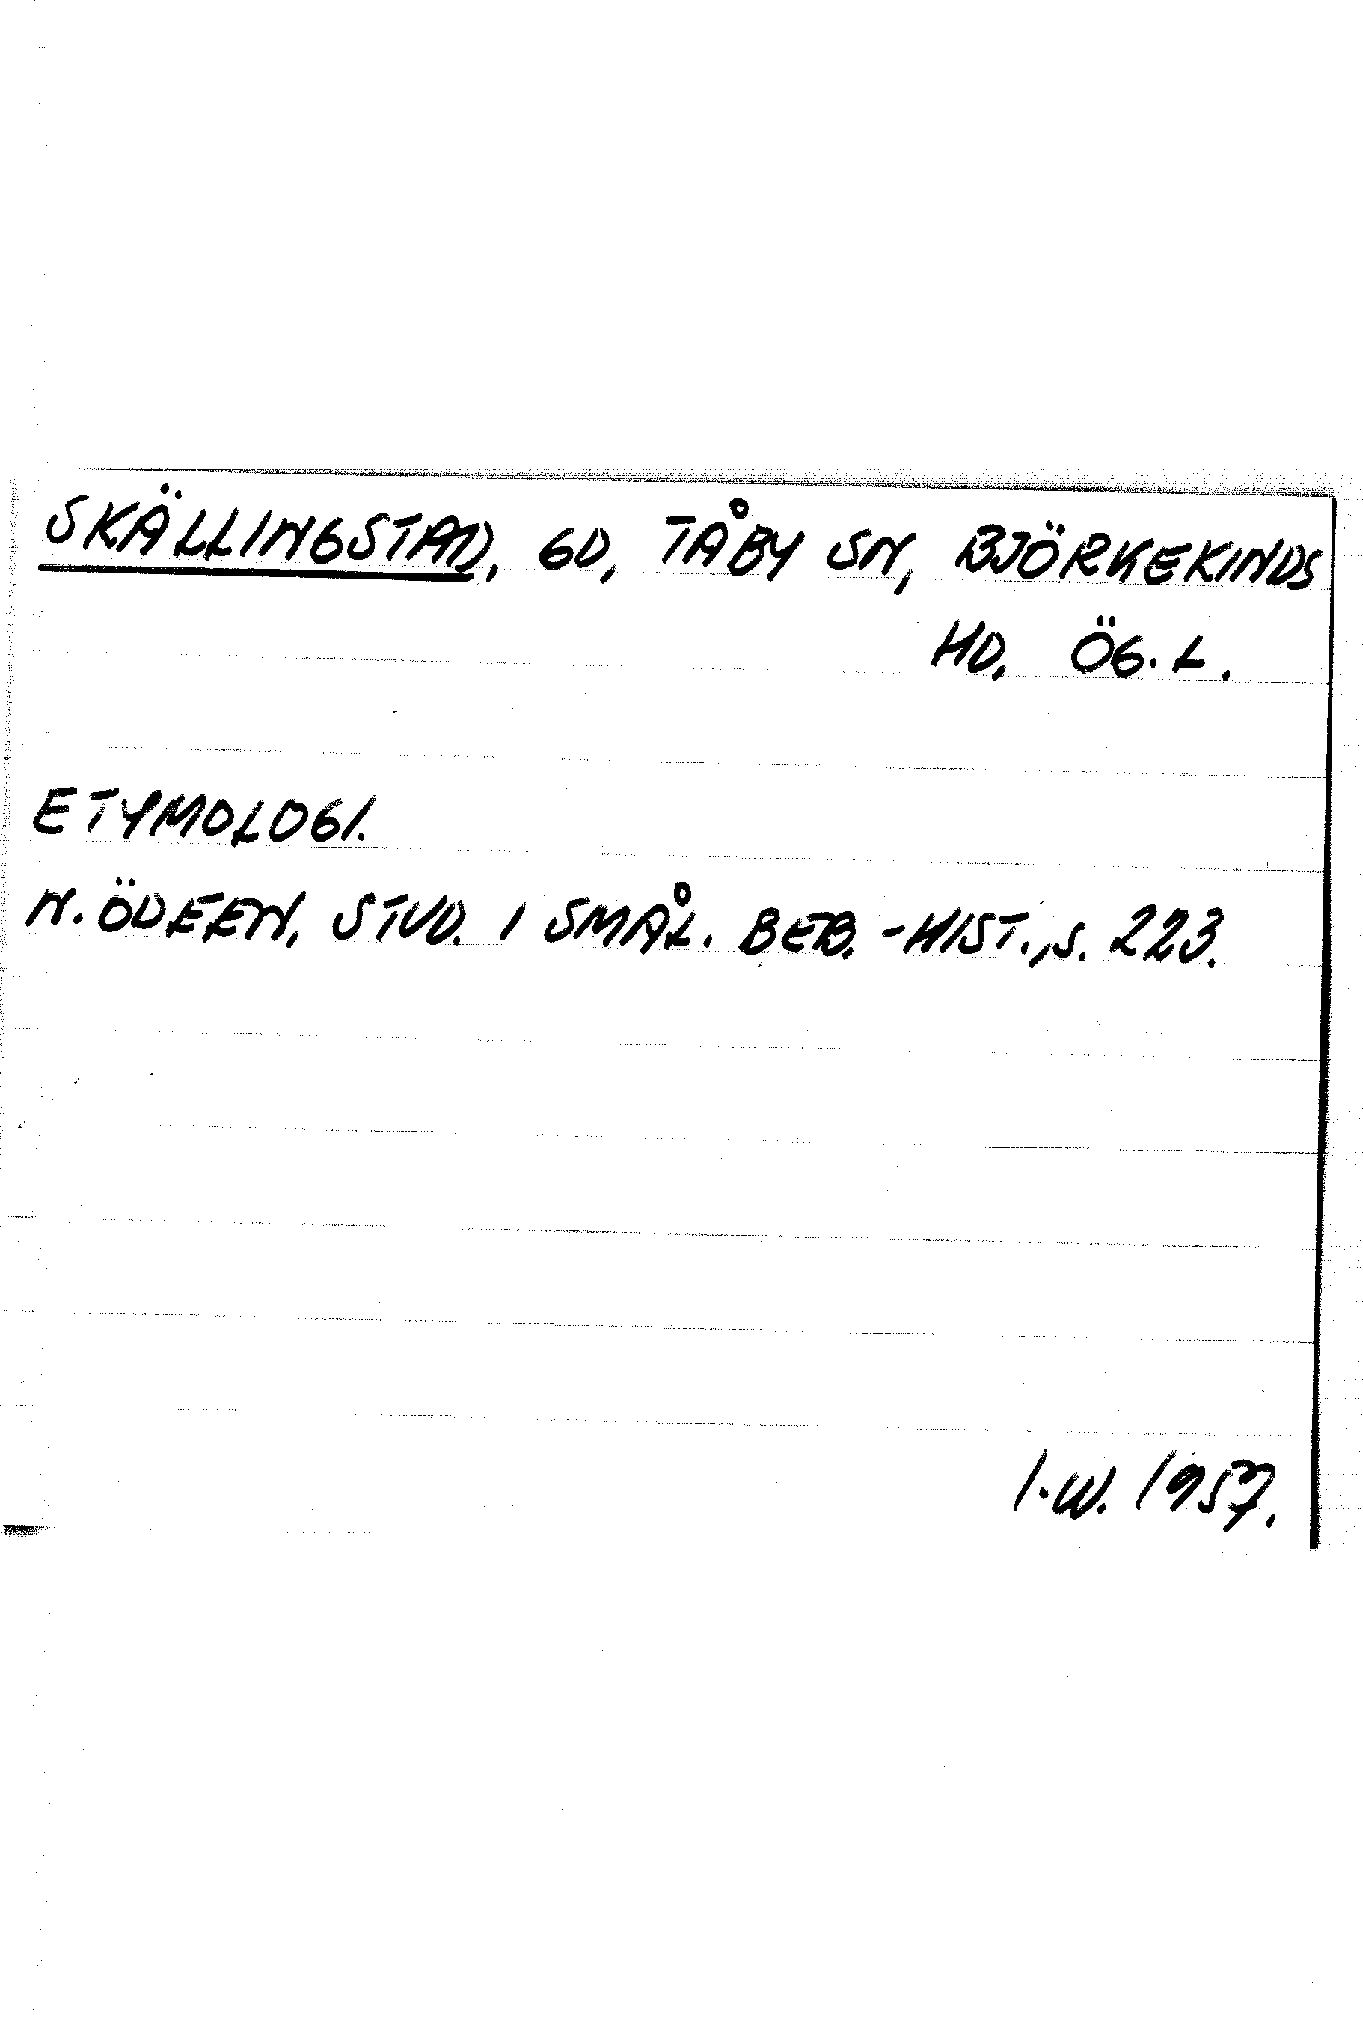 SKÄLLINGSTAD, GD, TÅBY SN, BJÖRKEKINDS
HD, ÖG. L.
ETYMOLOGI.
N. ÖDEEN, STUD. I SMÅL. BEB.-HIST., S. 223.
I.W. 1957.